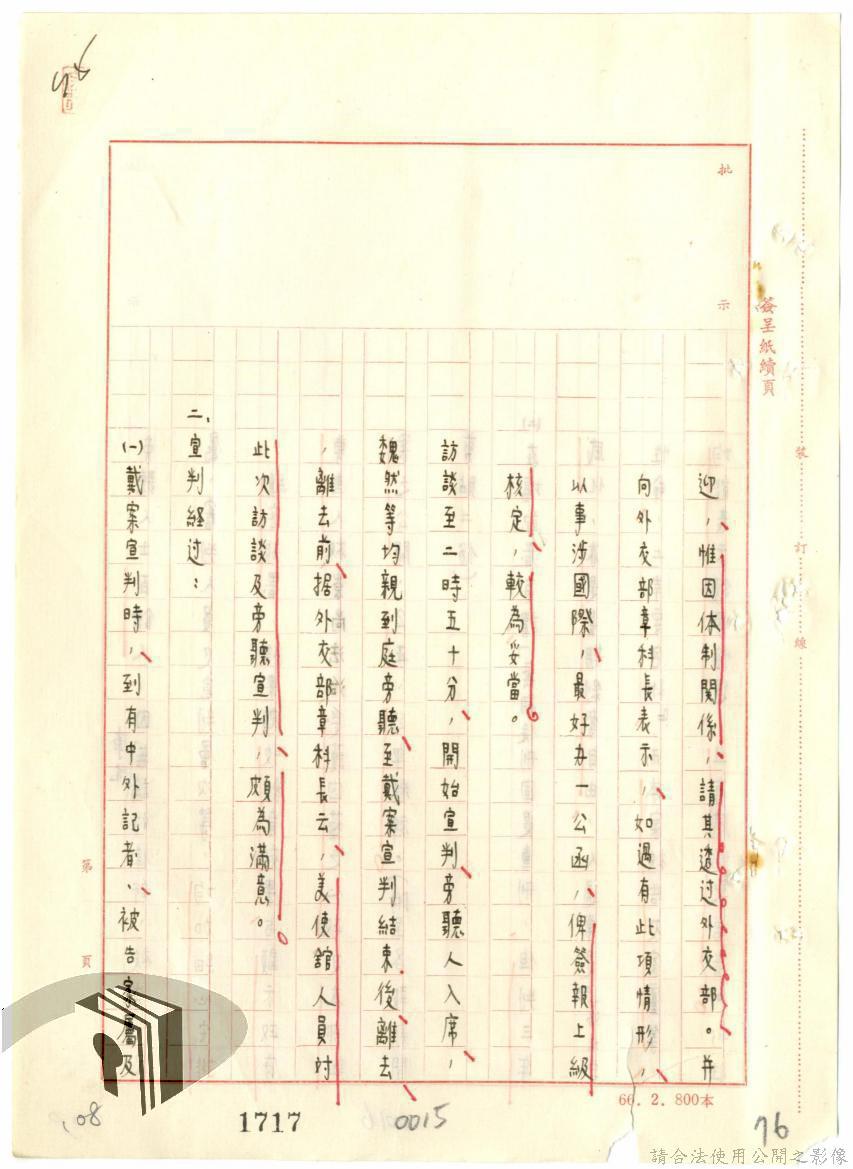 簽呈紙續頁
批示
裝訂線
迎，惟因体制関係，請其透过外交部。并
向外交部章科長表示，如過有此項情形，
以事涉國際，最好办一公函，俾簽報上級
核定，較為妥當。
訪談至二時五十分，開始宣判旁聽人入席，
魏然等均親到庭旁聽至戴案宣判結束後離去
，離去前据外交部章科長云，美使舘人員対
此次訪談及旁聽宣判，頗為滿意。
二、宣判経过：
(一)戴案宣判時，到有中外記者、被告家屬及
第頁
66. 2. 800本
1717
0015
76
請合法使用公開之影像